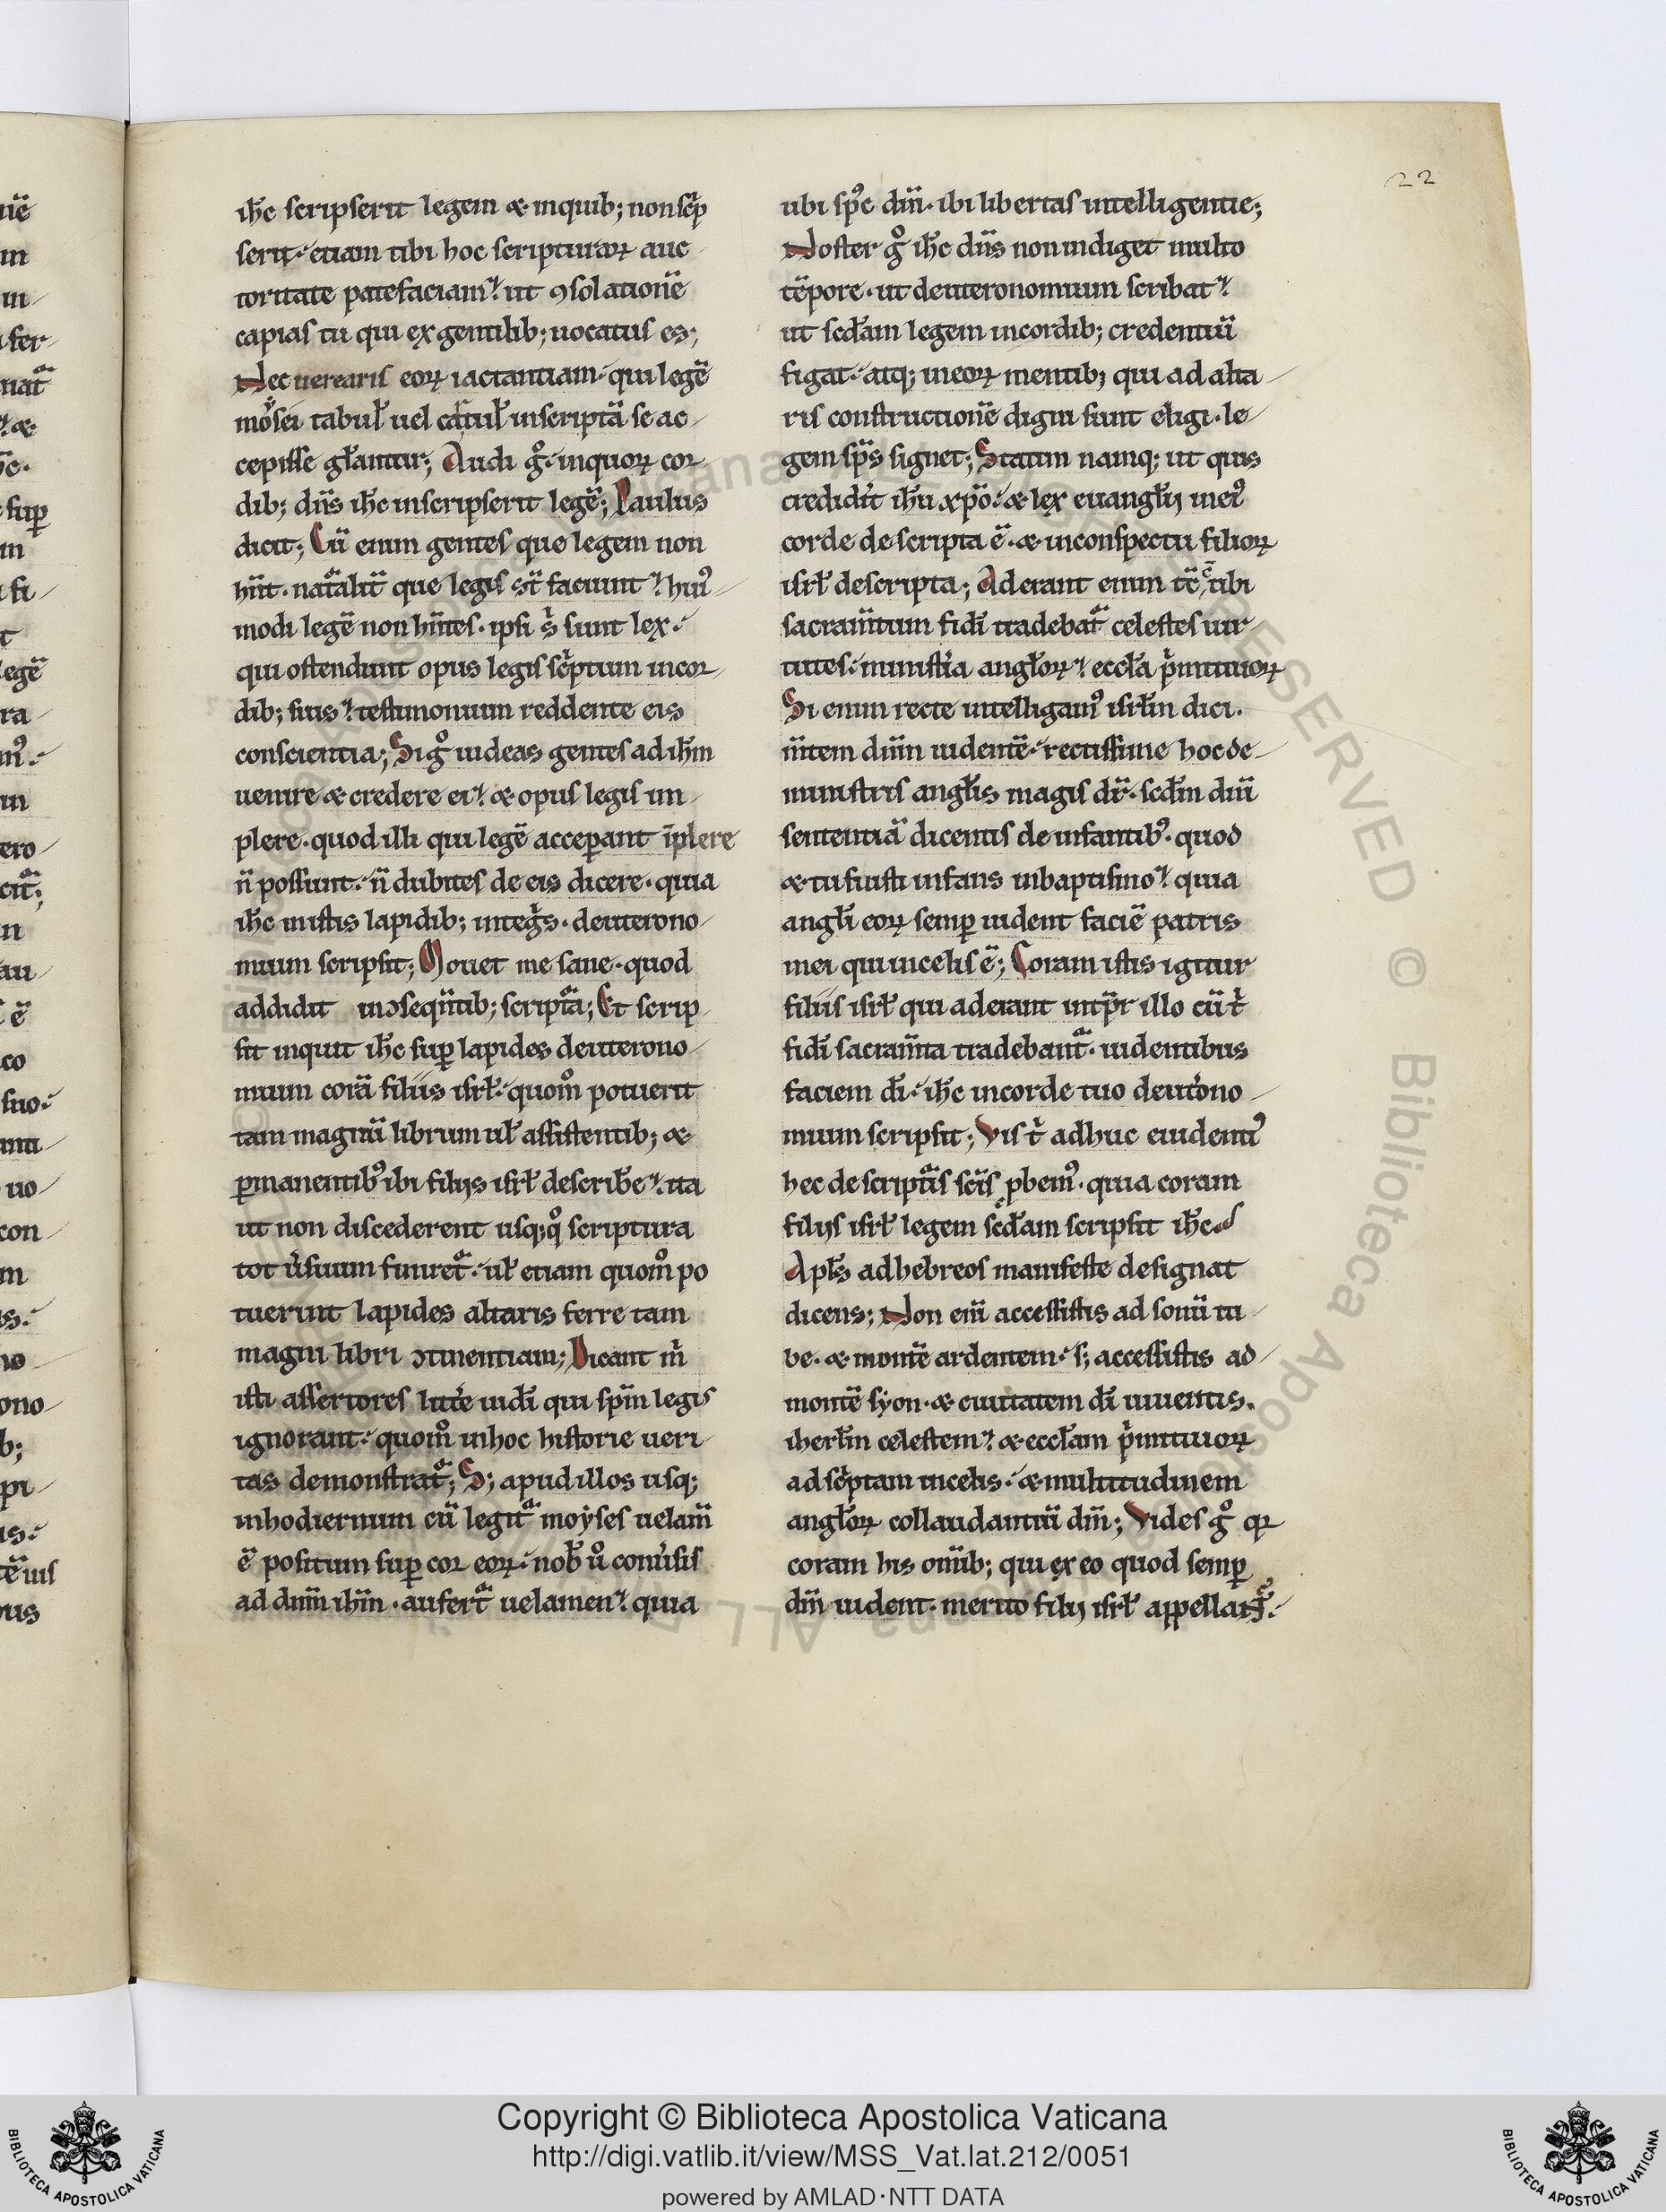 22
ih̅c scripserit legem & inquib; non sc̅p
serit. etiam tibi hoc scripturaꝝ auc
toritate patefaciam. ut ꝯsolatione̅
capias tu qui ex gentilib; uocatus es;
Nec uerearis eoꝝ iactantiam. qui lege̅
moysei tabul̅ uel catul̅ inscripta̅ se ac
cepisse gl̅antur; Audi gͦ. inquoꝝ cor
dib; dn̅s ih̅c inscripserit lege̅; Paulus
dicit; Cu̅ enim gentes que legem non
hn̅t. natͣalit̅ que legis st̅ faciunt. huiꝰ
modi lege̅ non hn̅tes. ipsi sⁱ sunt lex.
qui ostendunt opus legis scⁱptum incor
dib; suis. testimonium reddente eis
conscientia; Si gͦ uideas gentes ad ih̅m
uenire & credere ei. & opus legis im
plere. quod illi qui lege̅ acceꝑant i̅plere
n̅ possunt. n̅ dubites de eis dicere. quia
ih̅c in istis lapidib; integⁱs. deuterono
mium scripsit; Mouet me sane. quod
addidit inↄseque̅tib; scriptͣa; Et scrip
sit inquit ih̅c suꝑ lapides deuterono
mium cora̅ filiis isrl̅. quom̅o potuerit
tam magnu̅ librum ul̅ assistentib; &
ꝑmanentibꝰ ibi filijs isrl̅ describe̅. ita
ut non discederent usq; qͦ scriptura
tot u̅suum finiretͣ. ul̅ etiam quom̅o po
tuerint lapides altaris ferre tam
magni libri ↄtinentiam; Dicant mⁱ
isti assertores litt̅e iudi̅ qui spm̅ legis
ignorant. quom̅o inhoc historie ueri
tas demonstratͣ; S; apud illos usq;
inhodiernum cu̅ legitͣ moyses uelam̅
e̅ positum suꝑ cor eoꝝ. nob̅ uͦ conu̅sis
ad dnm̅ ihm̅. aufertͣ uelamen. quia
ubi spc̅ dn̅i. ibi libertas intelligentie;
Noster gͦ ih̅c dn̅s non indiget multo
te̅pore. ut deuteronomium scribat.
ut scd̅am legem incordib; credentiu̅
figat. atq; ineoꝝ mentib; qui ad alta
ris constructione̅ digni sunt eligi. le
gem sp̅s signet; Statim namq; ut quis
credidit ih̅u xpo̅. & lex euangl̅ij ineiꝰ
corde descripta e̅. & inconspectu filioꝝ
isrl̅ descripta; Aderant enim tc̅ c̅ tibi
sacram̅tum fidi̅ tradebatͣ celestes uir
tutes. ministⁱa angl̅oꝝ. eccl̅a pⁱmitiuoꝝ
Si enim recte intelligamꝰ isrl̅m dici.
m̅tem diu̅n uidente̅. rectissime hoc de
ministris angl̅is magis dr̅. scd̅m dn̅i
sententia̅ dicentis de infantibꝰ. quod
& tu fuisti infans inbaptismo. quia
angl̅i eoꝝ semꝑ uident facie̅ patris
mei qui incelis e̅; Coram istis igitur
filiis isrl̅ qui aderant intp̅r illo cu̅ tⁱ
fidi̅ sacram̅ta tradebantͣ. uidentibus
faciem di̅. ih̅c incorde tuo deut̅ono
mium scripsit; Vis tⁱ adhuc euidentiꝰ
hec de scriptͣis sci̅s ꝓbemꝰ. quia coram
filijs isrl̅ legem scd̅am scripsit ih̅c
Apl̅s ad hebreos manifeste designat
dicens; Non eni̅ accessistis ad sonu̅ tu
be. & monte̅ ardentem. s; accessistis ad
monte̅ syon. & ciuitatem di̅ uiuentis.
iherl̅m celestem. & eccl̅am pⁱmitiuoꝝ
ad scⁱptam incelis. & multitudinem
angl̅oꝝ collaudantiu̅ dm̅; Vides gͦ qꝛ
coram his omi̅b; qui ex eo quod semꝑ
dm̅ uident. merito filij isrl̅ appellantͣ.
Copyright © Biblioteca Apostolica Vaticana
http://digi.vatlib.it/view/MSS_Vat.lat.212/0051
powered by AMLAD・NTT DATA
BIBLIOTECA APOSTOLICA VATICANA
BIBLIOTECA APOSTOLICA VATICANA